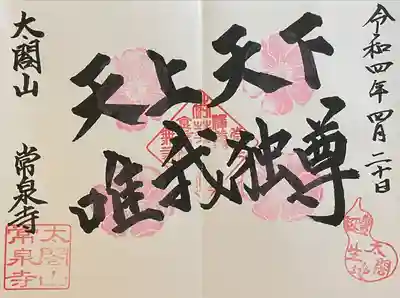 令和四年四月二十日
天上天下
唯我独尊
太閤山 常泉寺
太閤山
常泉寺
太閤